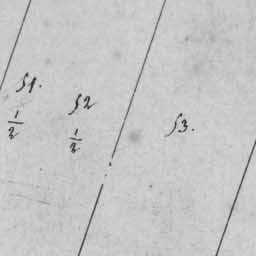 51.
1/2
52
1/2
53.